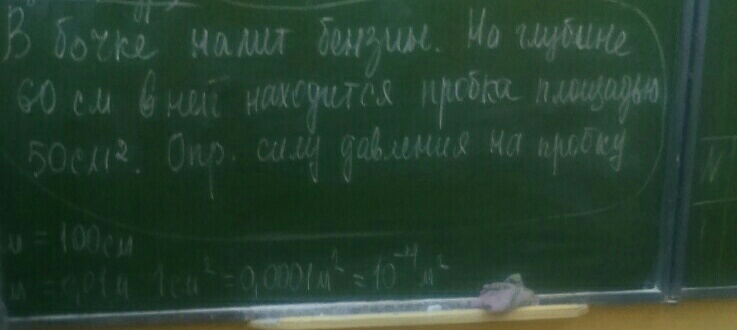 В бочке налит бензин. На глубине
60 см в ней находится пробка площадью
50 см². Опр. силу давления на пробку
= 100 см
= 0,01 м 1 см² = 0,0001 м² = 10⁻⁴ м²
N